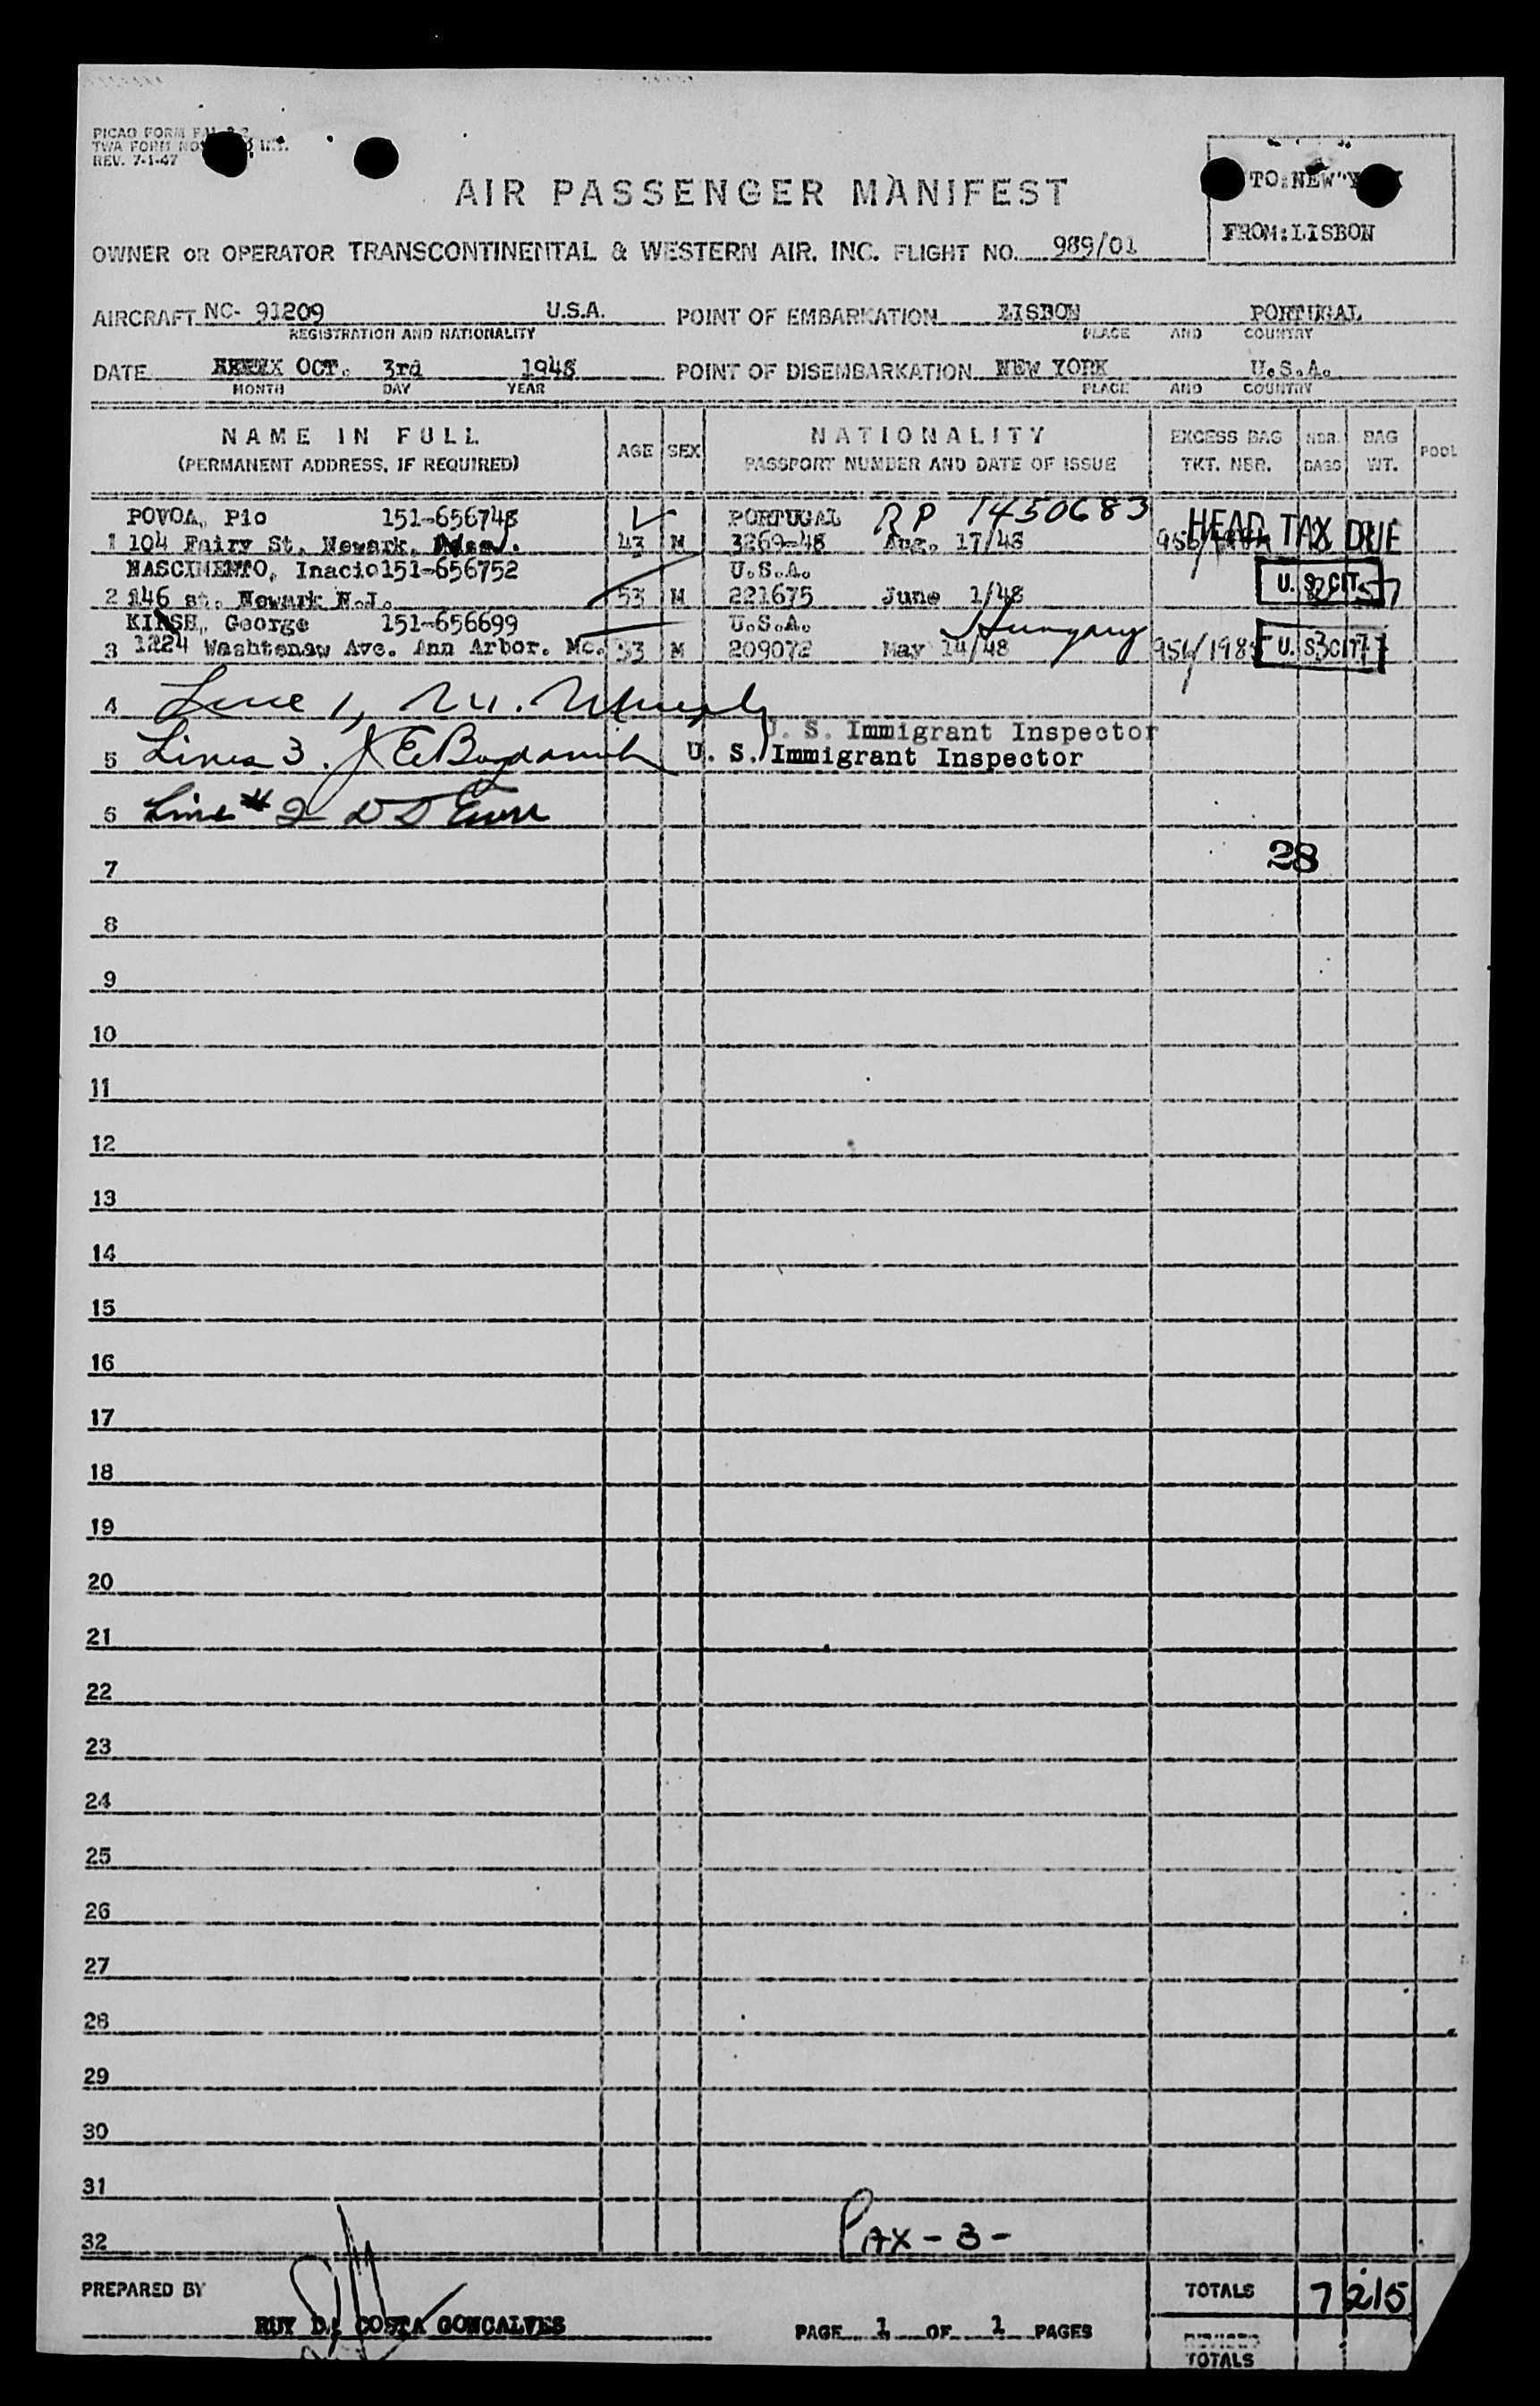 PICAO FORM
TWA FORM NO.
REV. 7-1-47
TO:NEW
AIR PASSENGER MANIFEST
FROM:LISBON
OWNER OR OPERATOR TRANSCONTINENTAL & WESTERN AIR. INC. FLIGHT NO. 989/01
AIRCRAFT NC- 91209 U.S.A. POINT OF EMBARKATION LISBON PORTUGAL
REGISTRATION AND NATIONALITY PLACE AND COUNTRY
DATE OCT. 3rd 1948 POINT OF DISEMBARKATION NEW YORK U.S.A.
MONTH DAY YEAR PLACE AND COUNTRY
NAME IN FULL AGE SEX NATIONALITY EXCESS BAG NBR. BAG POOL
(PERMANENT ADDRESS, IF REQUIRED) PASSPORT NUMBER AND DATE OF ISSUE TKT. NBR. BAGS WT.
POVOA, Pio 151-656748 PORTUGAL RP 1450683
1 104 Fairy St. Newark. 43 M 3269-48 Aug. 17/48 HEAD TAX DUE
NASCIMENTO, Inacio 151-656752 U.S.A.
2 146 st. Newark N.J. 53 M 221675 June 1/48 U. S. CIT.
KIRSH, George 151-656699 U.S.A. Hungary
3 1224 Washtenaw Ave. Ann Arbor. Mc. 53 M 209072 May 14/48 U. S. CIT.
4 Line 1, M. Murphy
U. S. Immigrant Inspector
5 Lines 3. U. S. Immigrant Inspector
6 Line # 2
28
7
8
9
10
11
12
13
14
15
16
17
18
19
20
21
22
23
24
25
26
27
28
29
30
31
32 PAX - 3 -
PREPARED BY TOTALS 7 215
RUY D. COSTA GONCALVES PAGE 1 OF 1 PAGES
REVISED
TOTALS